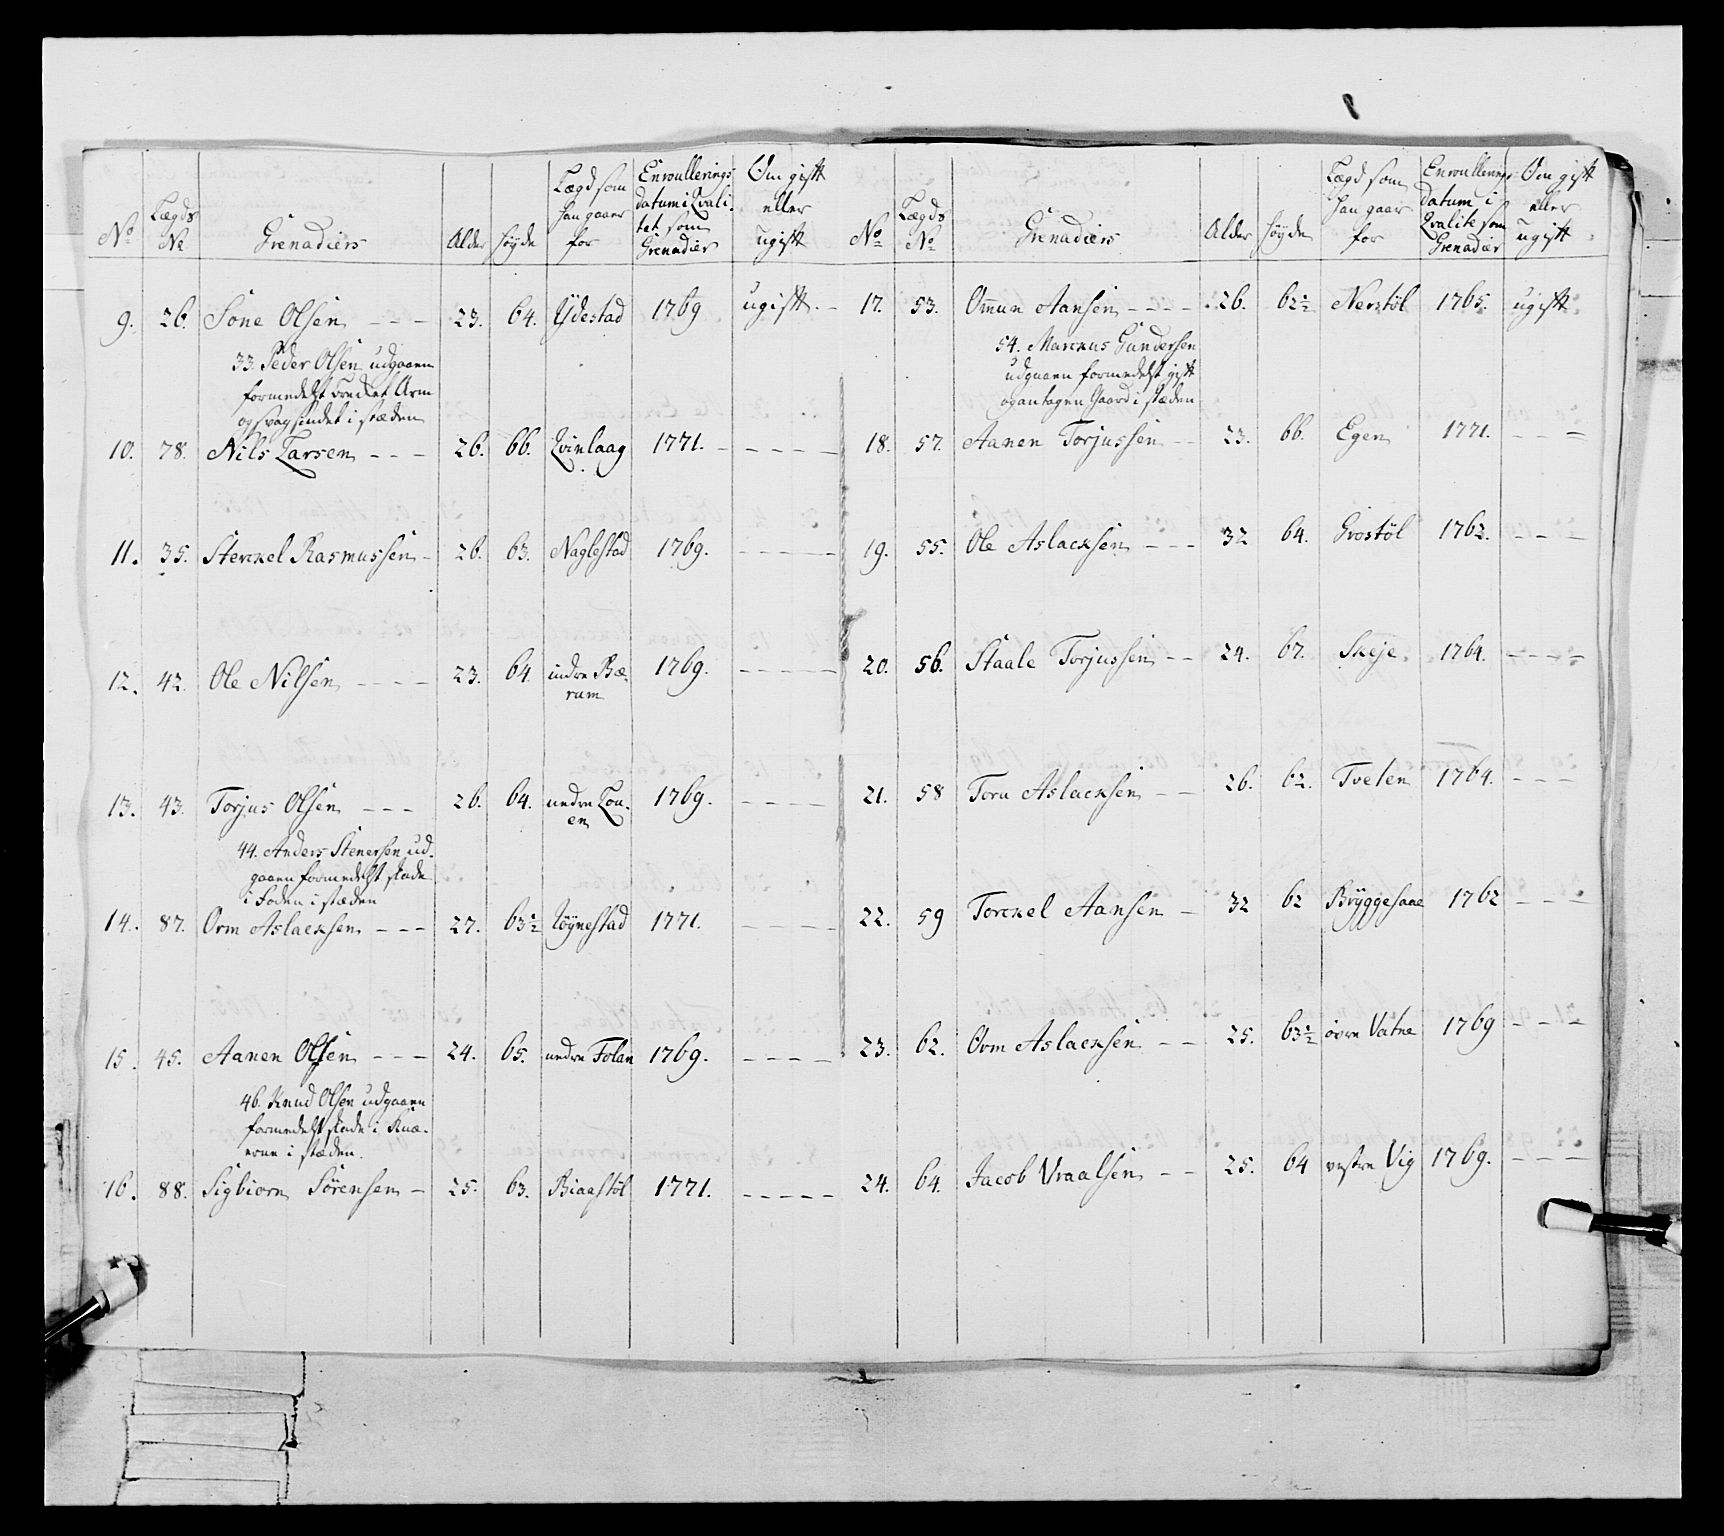 No Lægds No Grenadiers Alder Höyde Lægd som han gaar for Enroullerings datum i Qvalitet som Grenadier Om gift eller ugift
9. 26. Söne Olsen - - - 23. 64. Ydestad 1769 ugift. -
33. Peder Olsen udgaaen
formedelst brecket Arm
og svagsindet i stæden
10. 78. Nils Larsen - - - 26. 66. Qvinlaag 1771. - - - - -
11. 35. Sterckel Rasmussen - 26. 63. Naglestad 1769. - - - - -
12. 42. Ole Nilsen - - - - 23. 64. indre Bærum 1769. - - - - -
13. 43. Torjus Olsen - - - 26. 64. nedre Louen 1769. - - - -
44. Anders Stenersen ud-
gaaen formedelst skade
i Foden i stæden
14. 87. Orm Aslacksen - - - 27. 63½ Röynestad 1771. - - - - -
15. 45. Aanen Olsen - - - 24. 65. nedre Foland 1769. - - - - -
46. Knud Olsen udgaaen
formedelst skade i Knæ-
erne i stæden.
16. 88. Sigbiorn Sörensen - 25. 63. Biaastöl 1771. - - - - -
No Lægds No Grenadiers Alder Höyde Lægd som han gaar for Enroullerings datum i Qvalite som Grenadier Om gift eller ugift
17. 53. Omun Aansen - - - - 26. 62½ Nerstöl 1765. ugift.
54. Marckus Gundersen
udgaaen formedelst gift
og antagen Gaard i stæden
18. 57. Aanen Torjussen - - 23. 66. Egen 1771. - - =
19. 55. Ole Aslacksen - - - 32 64. Grostöl 1762. - - -
20. 56. Staale Torjussen - - 24. 67. Skeje 1764. - - - -
21. 58 Toru Aslacksen - - 26. 62. Tveten 1764. - - -
22. 59 Torckel Aansen - 32 62 Bryggesaae 1762 - - -
23. 62. Orm Aslacksen - - 25. 63½ övre Vatne 1769 - - -
24. 64. Jacob Vraalsen - - 25. 64 vestre Vig 1769. - - -